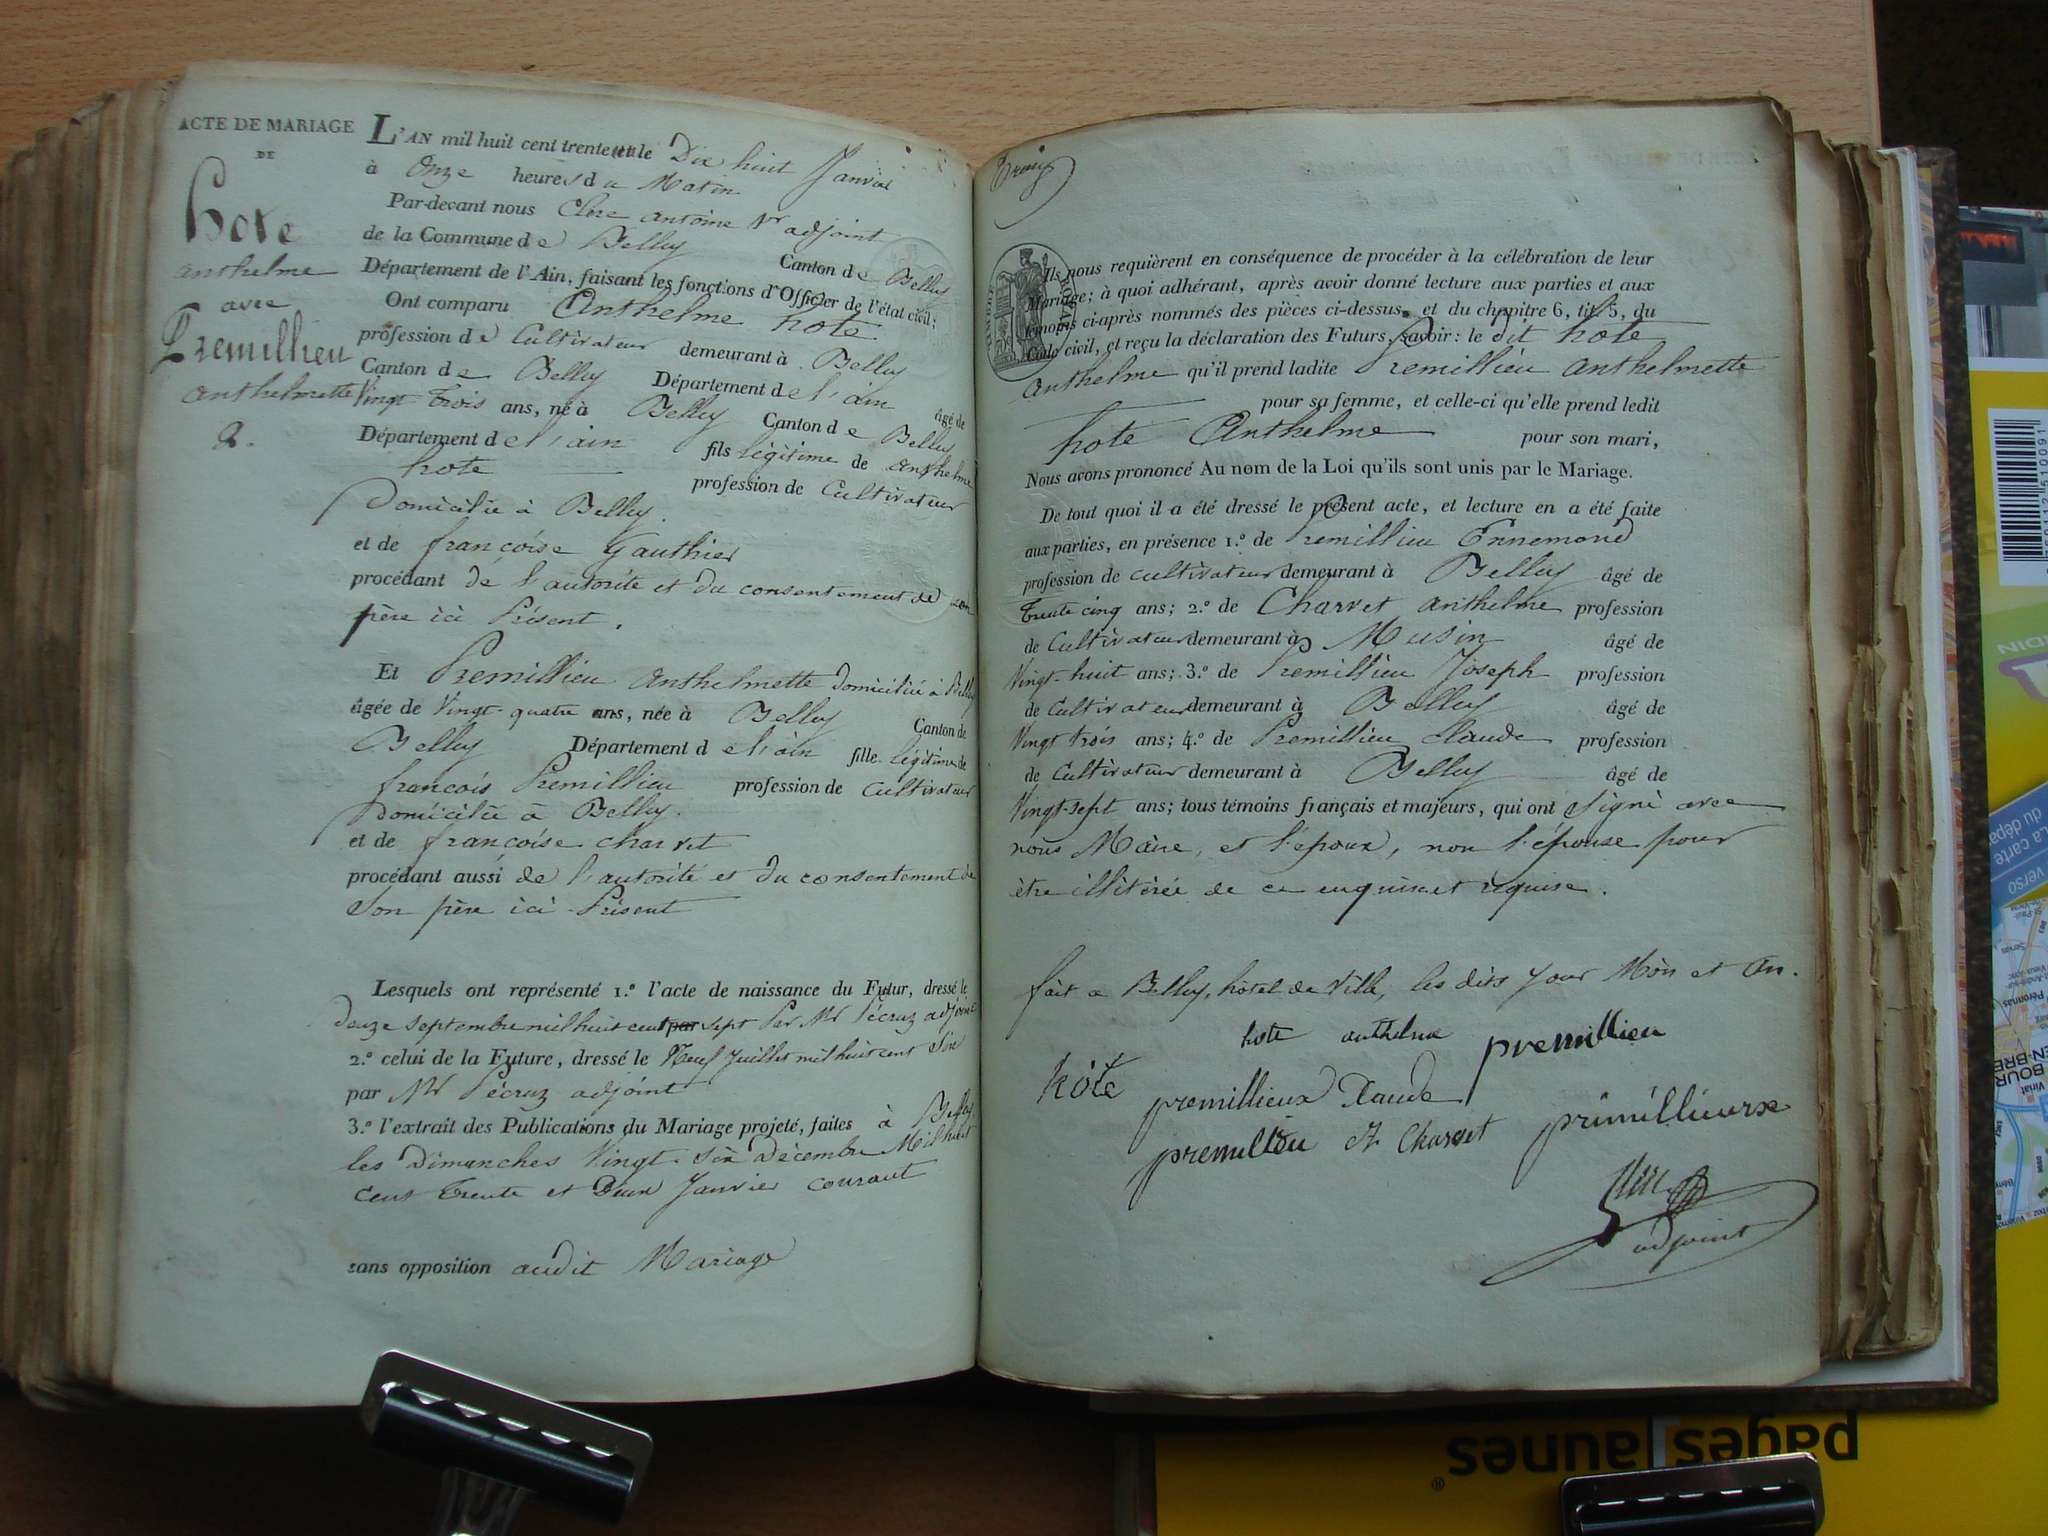 ACTE DE MARIAGE
DE
hote
anthelme
avec
Premillieu
anthelmette
2.
L'AN mil huit cent trente un le Dix huit Janvier
à Onze heures du Matin
Par-devant nous Clerc antoine 1er adjoint
de la Commune de Belley Canton de Belley
Département de l'Ain, faisant les fonctions d'Officier de l'état civil;
Ont comparu Anthelme hote
profession de Cultivateur demeurant à Belley
Canton de Belley Département de l'ain âgé de
Vingt trois ans, né à Belley Canton de Belley
Département de l'ain fils légitime de anthelme
hote profession de Cultivateur
Domicilié à Belley.
et de françoise Gauthier
procédant de l'autorité et du consentement de son
père ici Présent.
Et Premillieu anthelmette domiciliée à Belley
âgée de Vingt quatre ans, née à Belley Canton de
Belley Département de l'ain fille légitime de
francois Premillieu profession de Cultivateur
Domicilié à Belley.
et de françoise charvet
procédant aussi de l'autorité et du consentement de
Son père ici Présent
Lesquels ont représenté 1.º l'acte de naissance du Futur, dressé le
douze septembre mil huit cent sept Par Mr Pécruz adjoint
2.º celui de la Future, dressé le Neuf Juillet mil huit cent Six
par Mr Pécruz adjoint
3.º l'extrait des Publications du Mariage projeté, faites à Belley
les Dimanches Vingt-six Décembre Mil huit
Cent Trente et Deux Janvier courant
sans opposition audit Mariage
TIMBRE ROYAL
Ils nous requièrent en conséquence de procéder à la célébration de leur
Mariage; à quoi adhérant, après avoir donné lecture aux parties et aux
témoins ci-après nommés des pièces ci-dessus, et du chapitre 6, tit. 5, du
Code civil, et reçu la déclaration des Futurs, savoir: le dit hote
anthelme qu'il prend ladite Premillieu anthelmette
pour sa femme, et celle-ci qu'elle prend ledit
hote Anthelme pour son mari,
Nous avons prononcé Au nom de la Loi qu'ils sont unis par le Mariage.
De tout quoi il a été dressé le présent acte, et lecture en a été faite
aux parties, en présence 1.º de Premillieu Ennemond
profession de cultivateur demeurant à Belley âgé de
Trente cinq ans; 2.º de Charvet anthelme profession
de Cultivateur demeurant à Musin âgé de
Vingt-huit ans; 3.º de Premillieu Joseph profession
de Cultivateur demeurant à Belley âgé de
Vingt trois ans; 4.º de Premillieu Claude profession
de Cultivateur demeurant à Belley âgé de
Vingt-sept ans; tous témoins français et majeurs, qui ont signé avec
nous Maire, et l'époux, non l'épouse pour
être illitérée de ce enquise et requise.
fait a Belley, hôtel de Ville, les dits Jour Mois et An.
hote anthelme premillieu
hôte
premillieux Claude
premillieu A Charvet primillieurx
Clerc
adjoint
pages jaunes
La carte
du dépar
verso